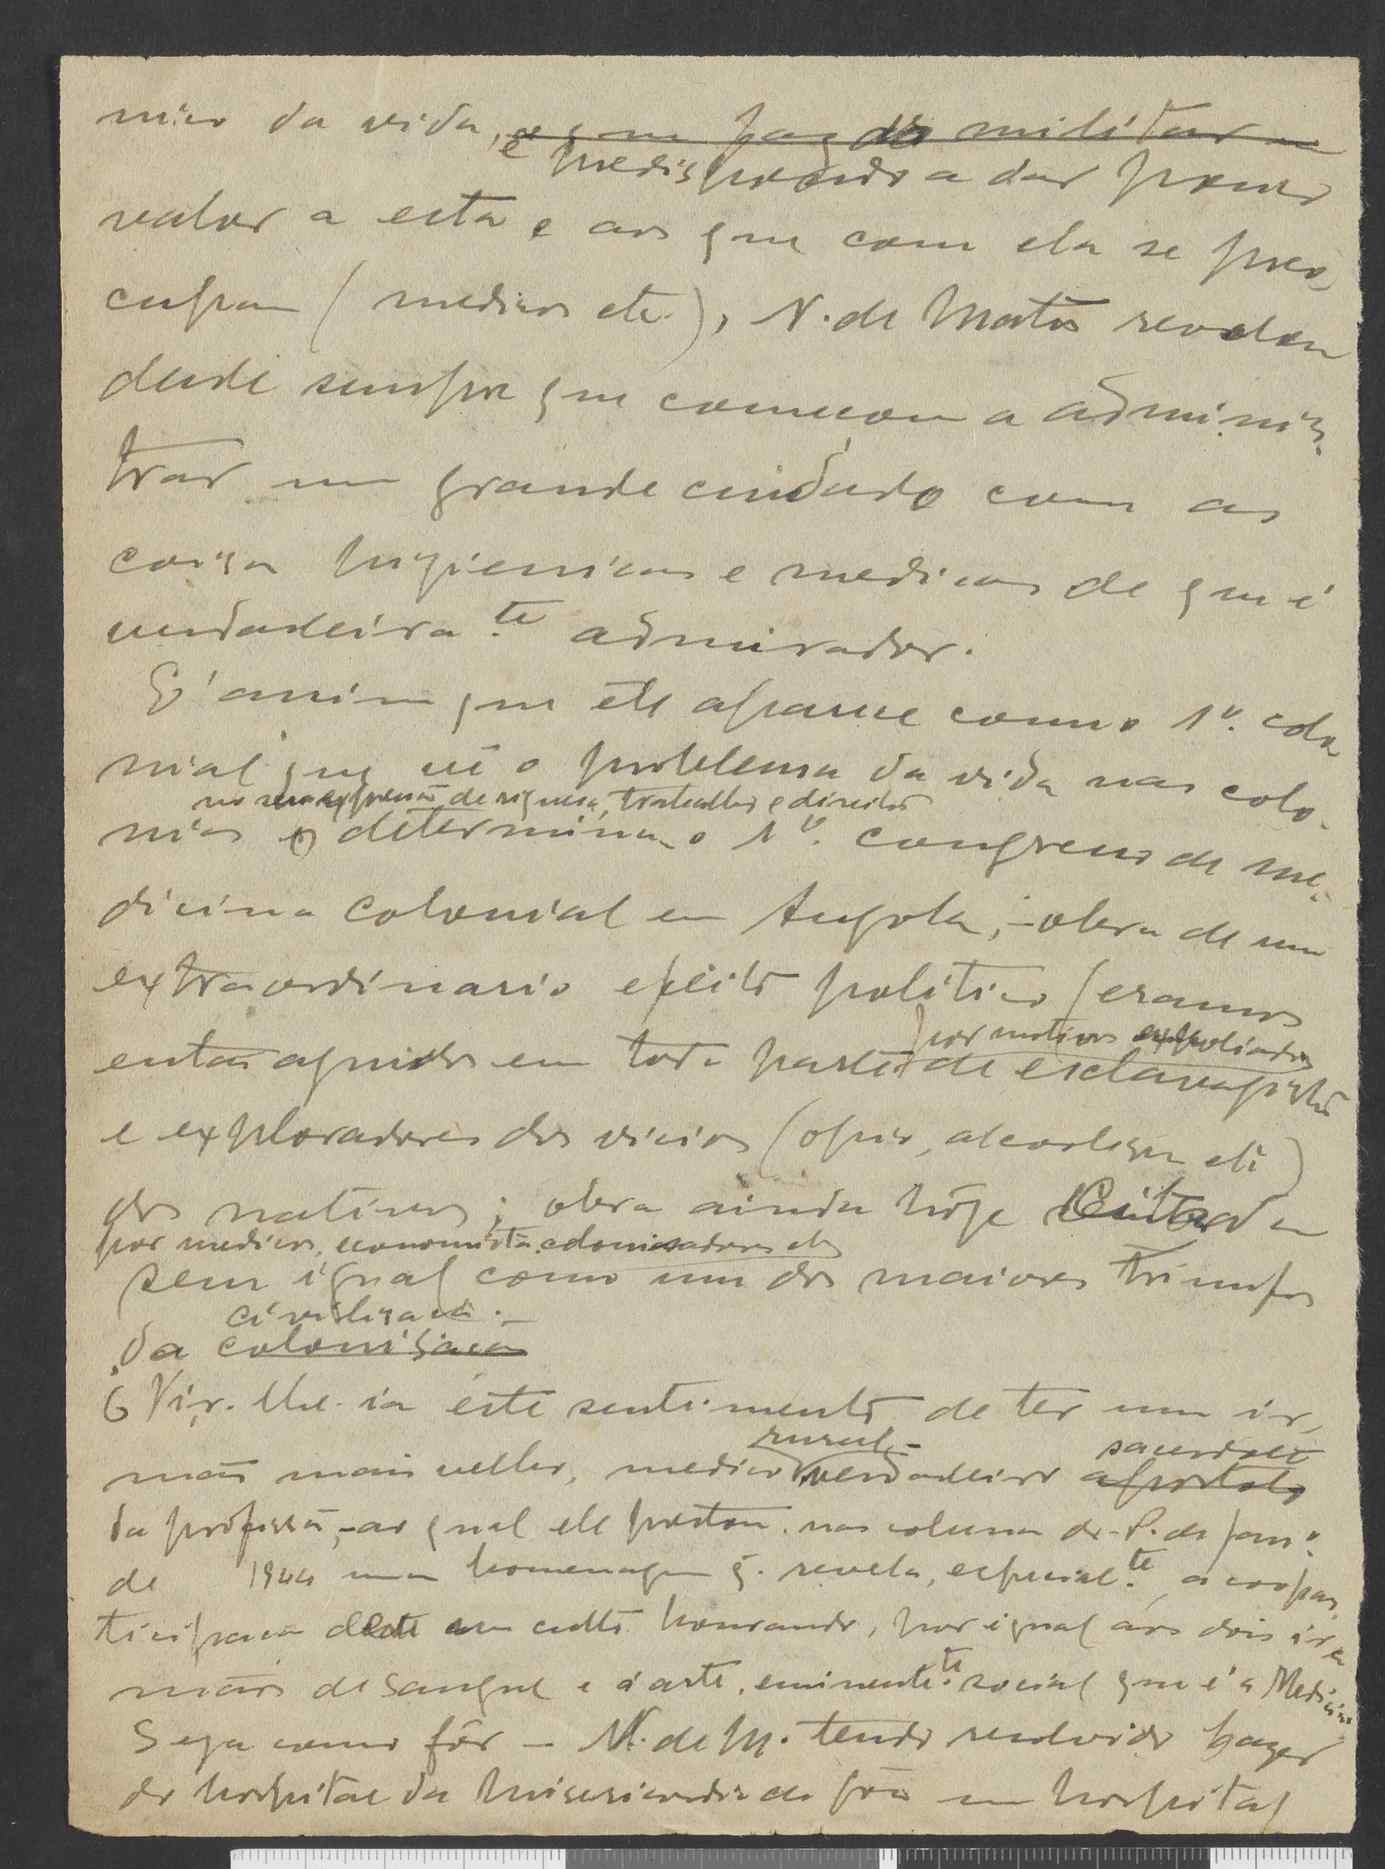 mico da vida, e que faz do militar
e predispondo a dar pouco
valor a esta e aos que com ela se preo-
cupam (medicos etc.), N. de Matos revelou
desde sempre que começou a adminis-
trar um grande cuidado com as
coisas higienicas e medicas de que é
verdadeira.te admirador.
E' assim que ele aparece como o 1º. colo
nial que vê o problema da vida nas colo-
na sua expressão de riquesa, trabalho e direitos
nias e determina o 1º. congresso de me-
dicina colonial em Angola, - obra de um
extraordinario efeito politico (eramos
por motivos
então apontados em toda parte de esclavagistas
e exploradores dos vicios (opio, alcoolismo etc)
dos nativos; obra ainda hoje citada
por medicos, economistas, colonisadores etc
sem igual como um dos maiores triunfos
civilisação.
da colonisação
Vir-lhe-ia este sentimento de ter um ir-
rural-
sacerdote
mão mais velho, medico verdadeiro apostolo
da profissão, - ao qual ele prestou nas colunas do P. de Jan.º
de 1944 uma homenagem q. revela, especial.te a compar-
ticipação deste em culto honrando, por igual aos dois ir-
mãos de sangue e á arte, eminente.te social que é a Medicina
Seja como fôr - N. de M. tendo resolvido fazer
do hospital da Misericordia de um hospital